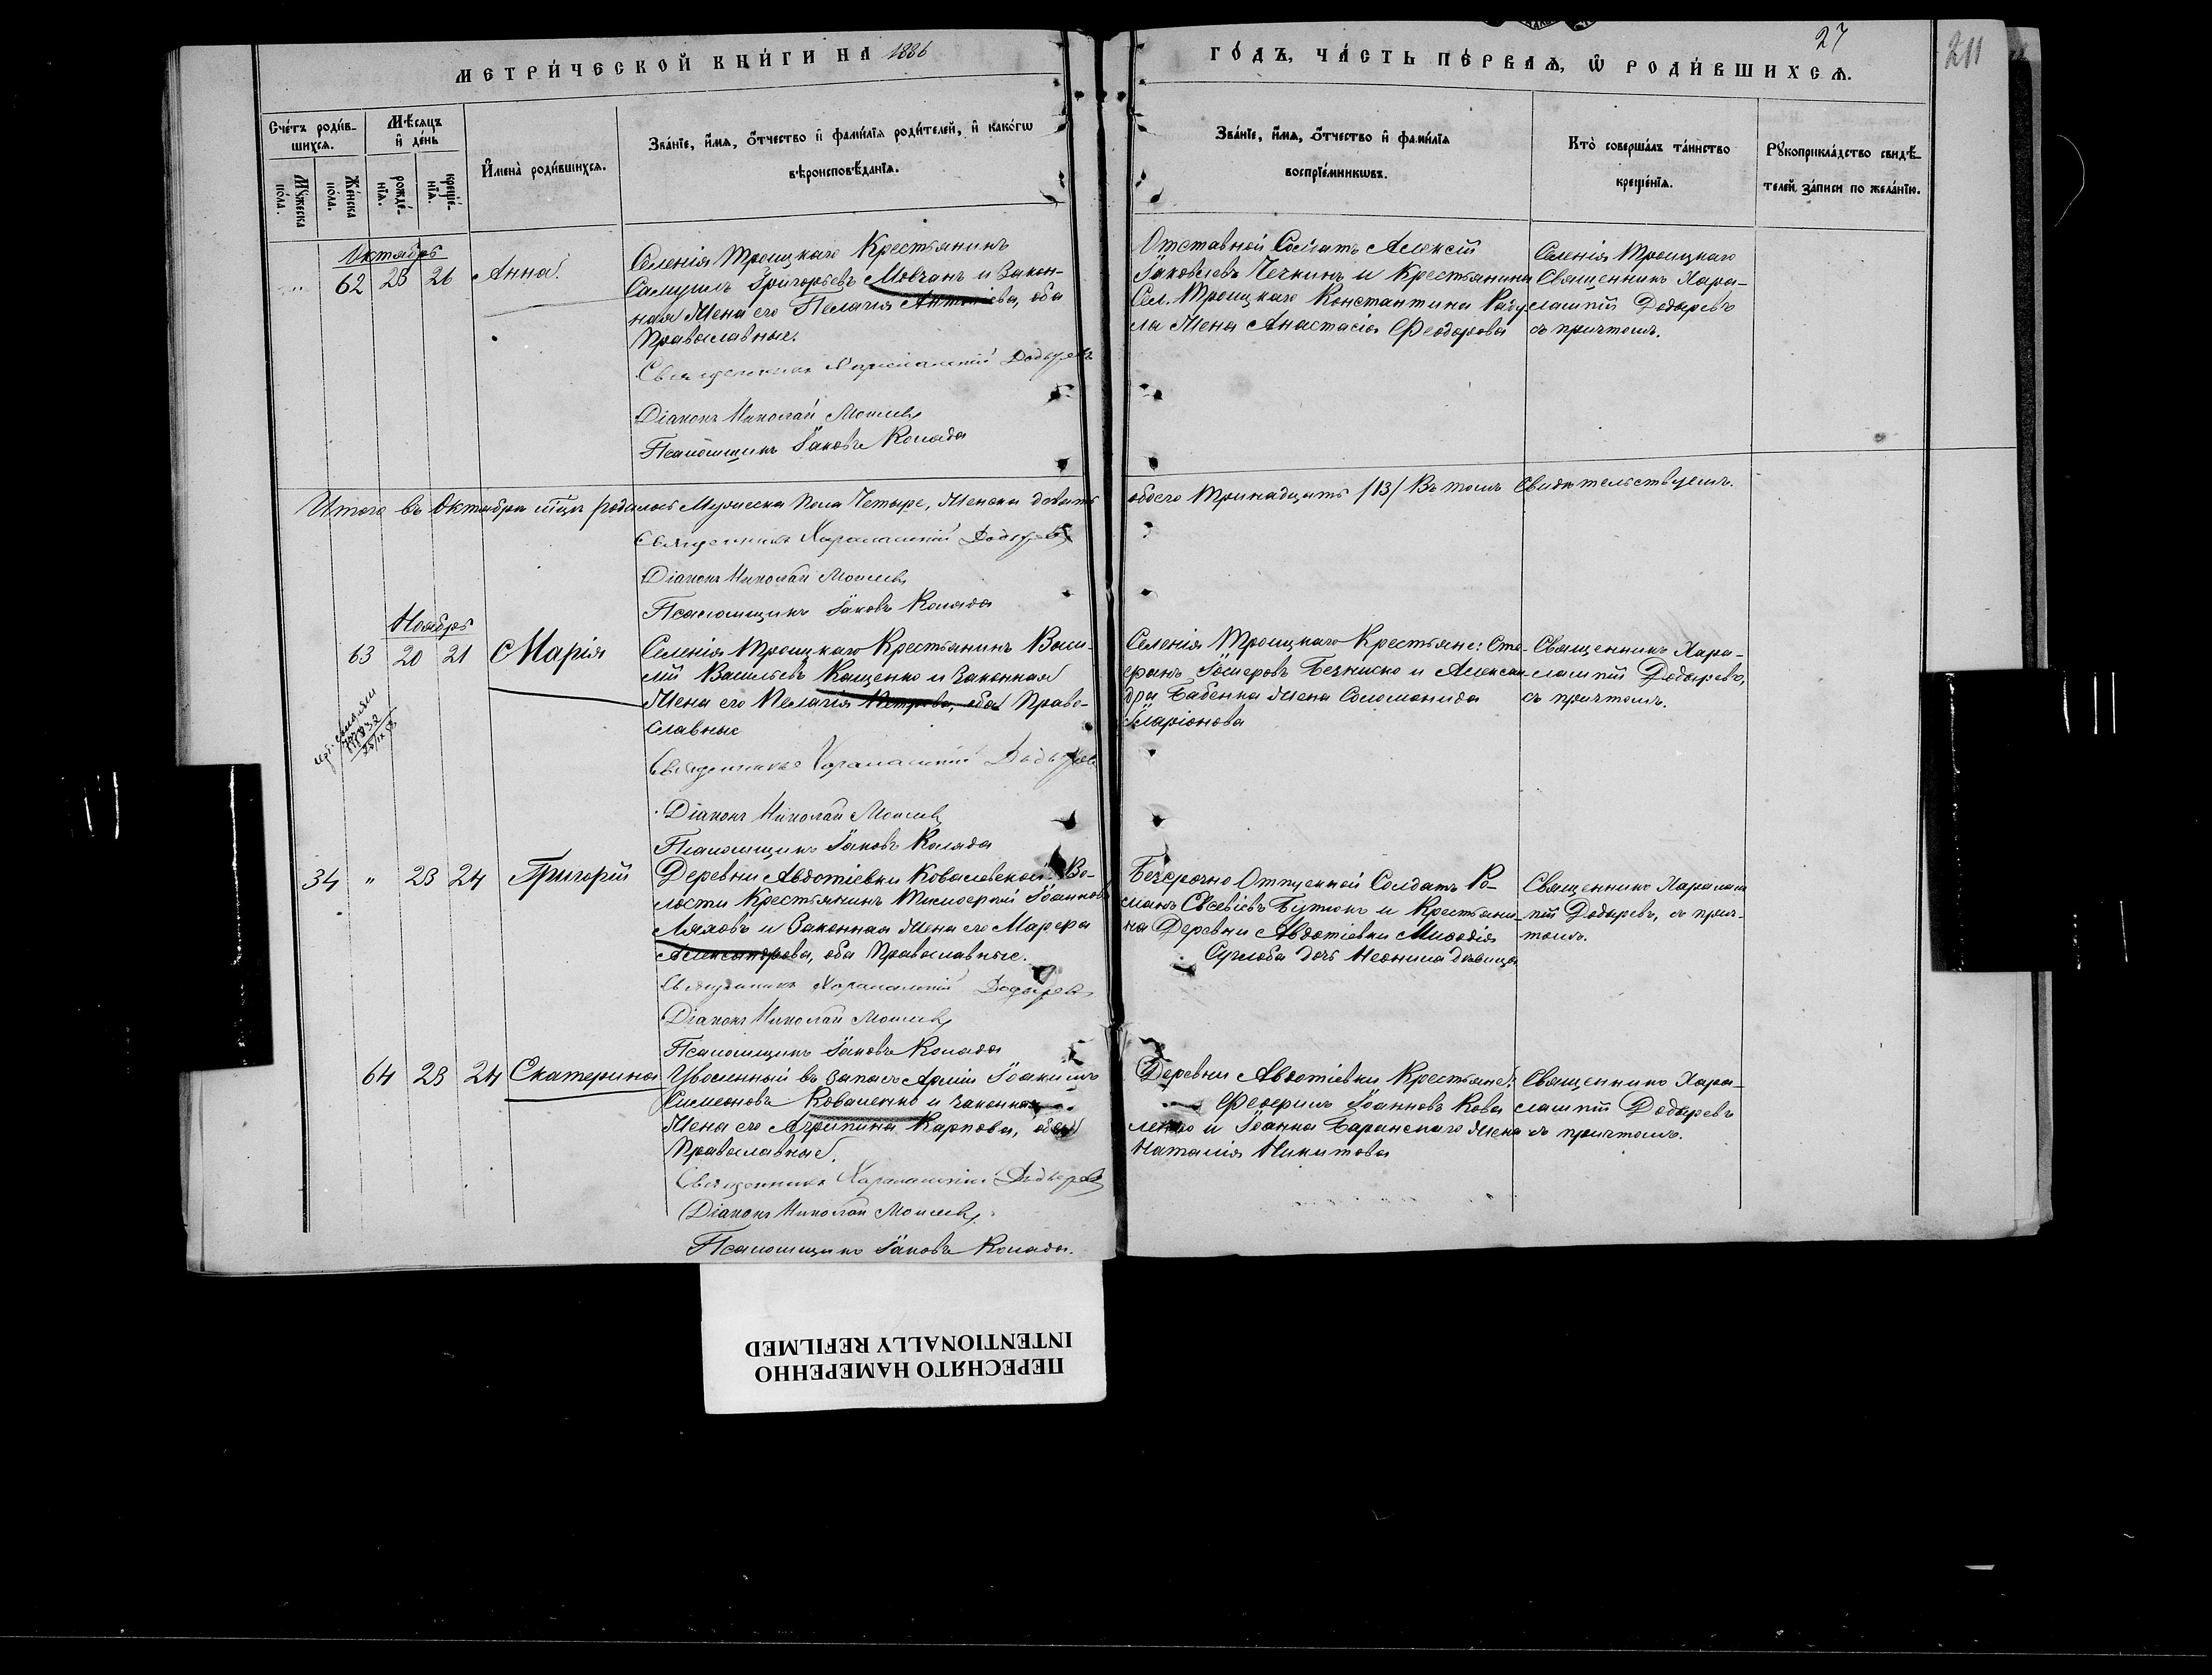 МЕТРИ́ЧЕСКОЙ КНИ́ГИ НА 1886
ГО́ДЪ, ЧА́СТЬ ПЕ́РВАѦ, Ѡ РОДИ́ВШИХСѦ.
27
211
Сче́тъ роди́в-
шихсѧ.
Мѣ́сѧцъ
и҆ де́нь
Мꙋ́жеска
по́ла.
Же́нска
по́ла.
рожде́-
нїѧ.
креще́-
нїѧ.
И҆мена̀ роди́вшихсѧ.
Зва́нїе, и҆́мѧ, ѻ҆́тчество и҆ фами́лїѧ роди́телей, и҆ како́гѡ
вѣроисповѣ́данїѧ.
Зва́нїе, и҆́мѧ, ѻ҆́тчество и҆ фами́лїѧ
воспрїе́мникѡвъ.
Кто̀ соверша́лъ та́инство
креще́нїѧ.
Рꙋкоприкла́дство свидѣ́-
телей за́писи по жела́нїю.
Октябрь
" 62 25 26 Анна
Селенія Троицкаго Крестьянинъ
Самуилъ Григорьевъ Мовчанъ и Закон-
ная Жена его Пелагія Антоніева, оба
Православные.
Священникъ Харалампій Добыревъ
Діаконъ Николай Моисеев
Псаломщикъ Іаковъ Коляда
Отставной Солдатъ Алексій
Іаковлевъ Чечкинъ и Крестьянина
Сел. Троицкаго Константина Раду
ла Жена Анастасія Феодорова
Селенія Троицкаго
Священникъ Хара-
лампій Добыревъ
съ причтомъ.
Итого въ Октябрѣ мцѣ родилось Мужеска Пола Четыре, Женска девять
обоего Тринадцать /13/ Въ томъ Свидетельствуемъ.
Священникъ Харалампій Добыревъ
Діаконъ Николай Моисеев
Псаломщикъ Іаковъ Коляда
Ноябрь
63 20 21 Марія
Селенія Троицкаго Крестьянинъ Васи-
лій Васильевъ Кащенко и Законная
Жена его Пелагія Петрова, оба Право-
славные
Священникъ Харалампій Добыревъ
Діаконъ Николай Моисеев
Псаломщикъ Іаковъ Коляда
Селенія Троицкаго Крестьяне: Сте-
фанъ Іосифовъ и Алексан
дра Бабенка Жена Соломонида
Иларіонова
Священникъ Хара-
лампій Добыревъ,
съ причтомъ.
34 " 23 24 Григорій
Деревни Авдотіевки Ковалевской Во-
лости Крестьянинъ Тимофей Іоанновъ
Ляховъ и Законная Жена его Марфа
Александрова, оба Православные.
Священникъ Харалампій Добыревъ
Діаконъ Николай Моисеев
Псаломщикъ Іаковъ Коляда
Безсрочно Отпускной Солдатъ Ро-
манъ Евсевіевъ и Крестьяни-
на Деревни Авдотіевки Мефодія
дочь Неонила дѣвица
Священникъ Харалам
пій Добыревъ, съ прич-
томъ.
64 23 24 Екатерина
Уволенный въ Запасъ Арміи Іоакимъ
Симеоновъ Коваленко и Законная
Жена его Агрипина Карпова, оба
Православные.
Священникъ Харалампій Добыревъ
Діаконъ Николай Моисеев
Псаломщикъ Іаковъ Коляда.
Деревни Авдотіевки Крестьяне:
Іоанновъ Кова
ленко и Іоанна Баранскаго Жена
Наталія Никитова
Священникъ Хара-
лампій Добыревъ
съ причтомъ.
ПЕРЕСНЯТО НАМЕРЕННО
INTENTIONALLY REFILMED